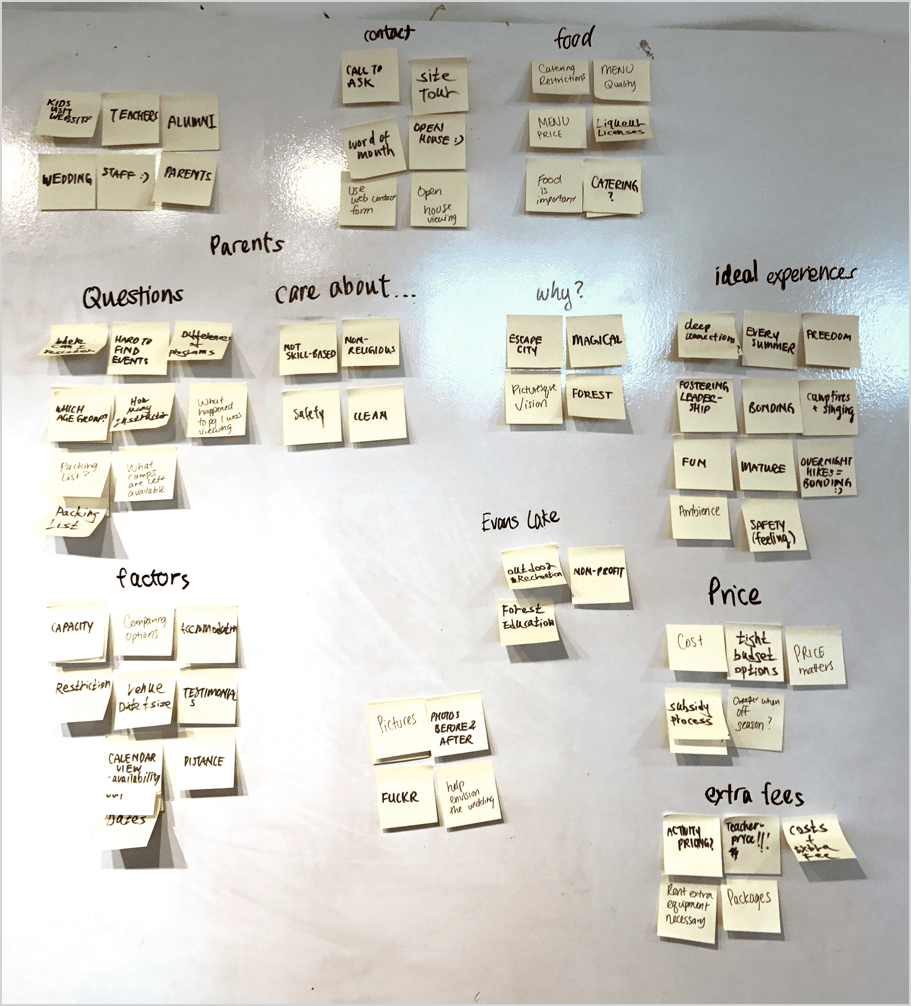 contact
food
CALL TO
ASK
site
TOUR
word of
mouth
OPEN
HOUSE :)
Use
web contact
form
Open
house
viewing
Catering
Restrictions
MENU
Quality
MENU
PRICE
Liquour
Licenses
Food
is
important
CATERING
?
KIDS
VISIT
WEBSITE
TEACHERS
ALUMNI
WEDDING
STAFF :)
PARENTS
Parents
Questions
HARD TO
FIND
EVENTS
Differences
of
programs
WHICH
AGE GROUP?
How
Many
What
happened
to pg I was
viewing
Packing
List?
What
camps
are left
available
Packing
List
care about...
NOT
SKILL-BASED
NON-
RELIGIOUS
Safety
CLEAN
why?
ESCAPE
CITY
MAGICAL
Picturesque
Vision
FOREST
ideal experiences
deep
connections
EVERY
SUMMER
FREEDOM
FOSTERING
LEADER-
SHIP
BONDING
Campfires
+ singing
FUN
MATURE
OVERNIGHT
HIKES =
BONDING
:)
Ambience
SAFETY
(feeling)
Evans Lake
outdoor
& Recreation
NON-PROFIT
Forest
Education
factors
CAPACITY
Comparing
Options
Accommodation
Restriction
venue
Date + size
TESTIMONIAL
S
CALENDAR
VIEW
-availability
Dates
DISTANCE
Pictures
PHOTOS
BEFORE &
AFTER
FLICKR
help
envision
the wedding
Price
Cost
tight
budget
options
PRICE
matters
subsidy
process
Cheaper when
off
season?
extra fees
ACTIVITY
PRICING?
Teacher-
price!!!
$
COSTS
+
Extra
Fee
Rent extra
equipment
necessary
Packages